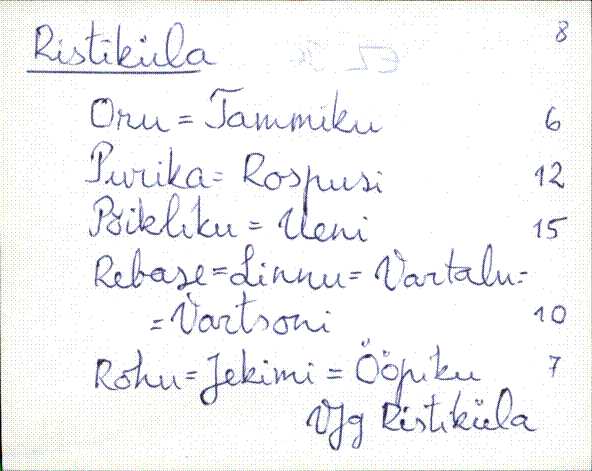 Ristiküla 8
Oru = Tammiku 6
Purika = Rospusi 12
Põikliku = Ueni 15
Rebase = Linnu = Vartalu =
= Vartsoni 10
Rohu = Jekimi = Ööpiku 7
Vjg Ristiküla